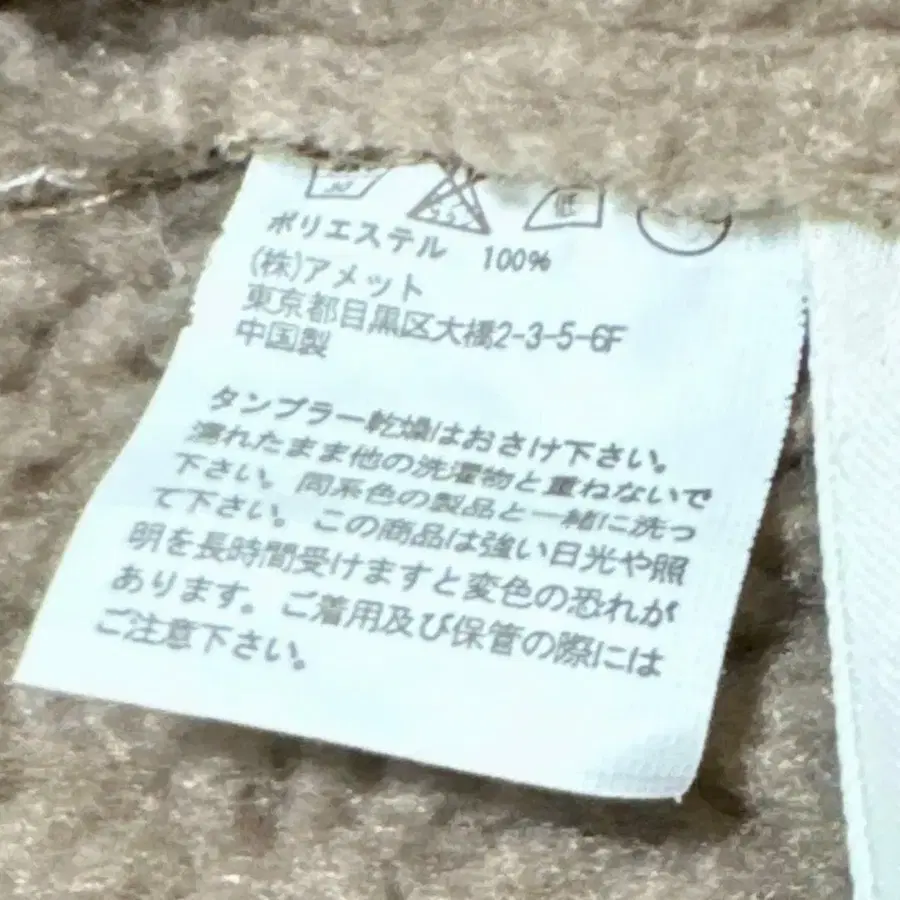 低
ポリエステル 100%
(株)アメット
東京都目黒区大橋2-3-5-6F
中国製
タンブラー乾燥はおさけ下さい。
濡れたまま他の洗濯物と重ねないで
下さい。同系色の製品と一緒に洗っ
て下さい。この商品は強い日光や照
明を長時間受けますと変色の恐れが
あります。ご着用及び保管の際には
ご注意下さい。